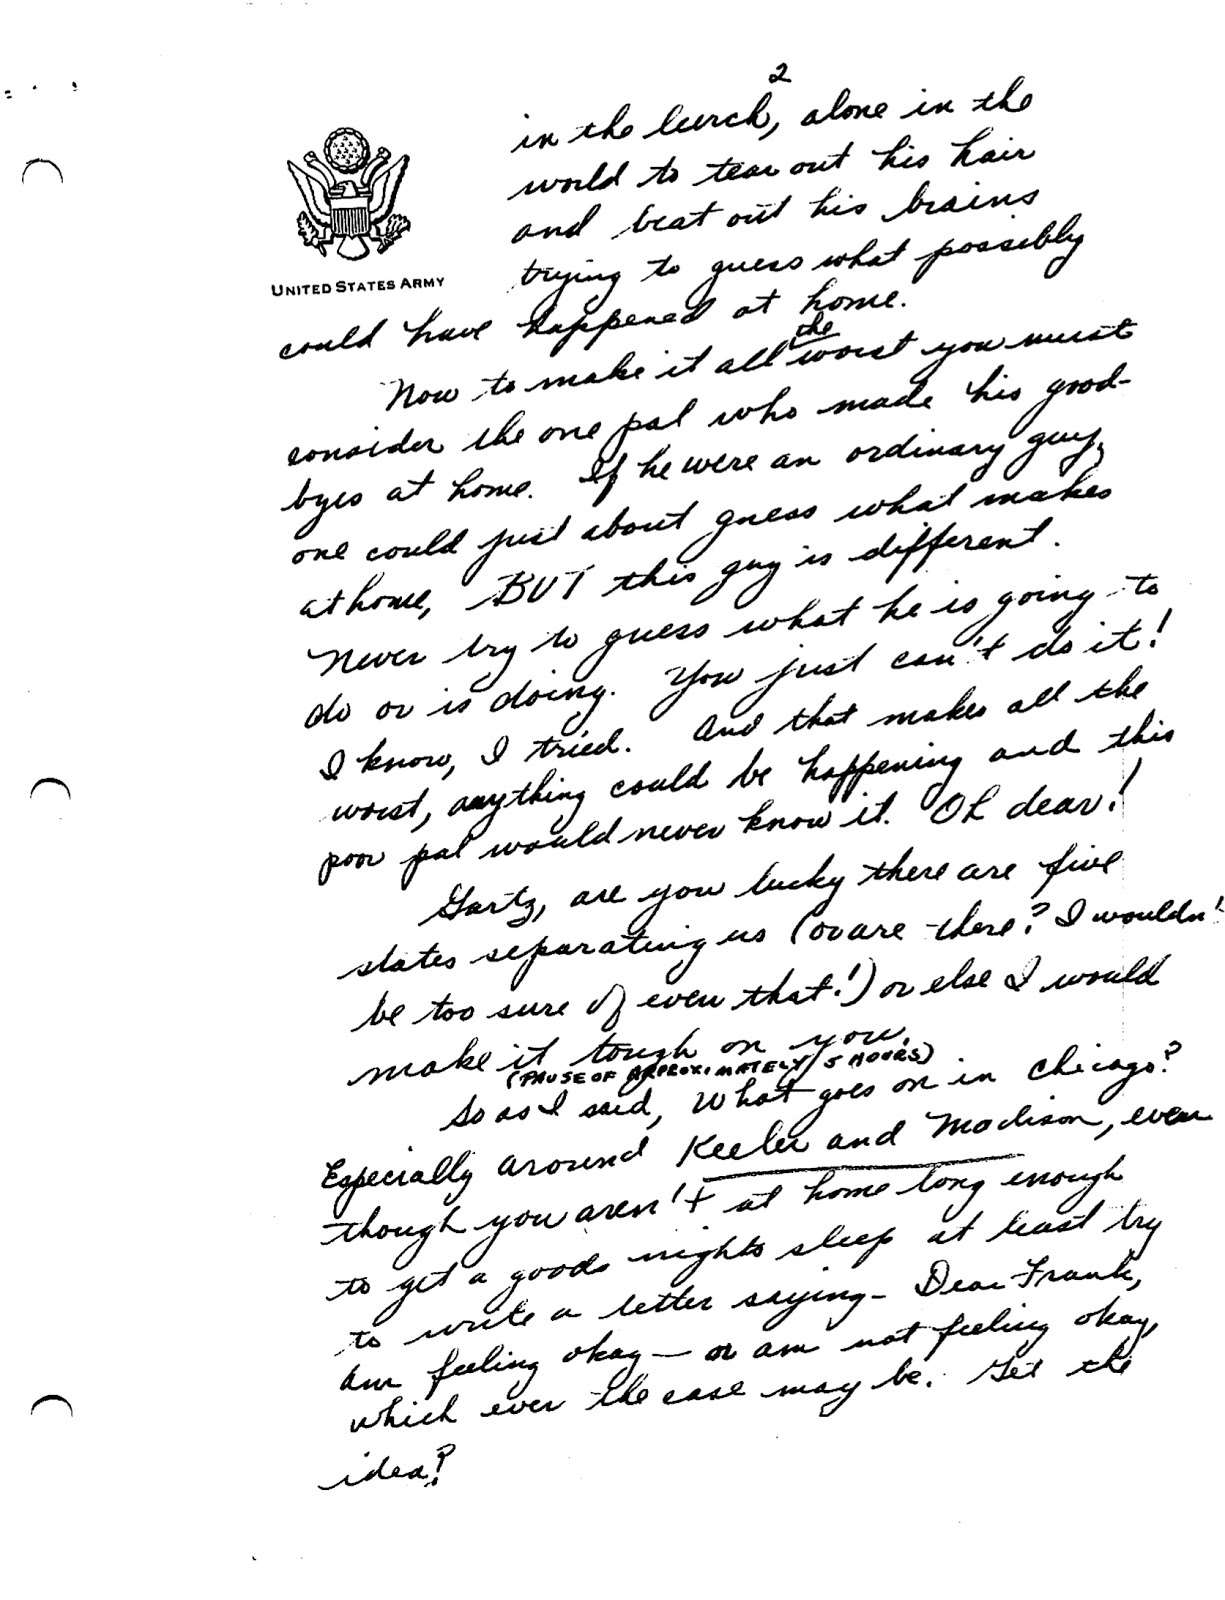 2
in the lurch, alone in the
world to tear out his hair
and beat out his brains
trying to guess what possibly
UNITED STATES ARMY
could have happened at home.
Now to make it all the worst you must
consider the one pal who made his good-
byes at home. If he were an ordinary guy,
one could just about guess what makes
at home, BUT this guy is different.
Never try to guess what he is going to
do or is doing. You just can't do it!
I know, I tried. And that makes all the
worst, anything could be happening and this
poor pal would never know it. Oh dear!
Gartz, are you lucky there are five
states separating us (or are there? I wouldn't
be too sure of even that!) or else I would
make it tough on you.
(PAUSE OF APPROXIMATELY 5 HOURS)
So as I said, What goes on in Chicago?
Especially around Keeler and Madison, even
though you aren't at home long enough
to get a goods nights sleep at least try
to write a letter saying - Dear Frank,
Am feeling okay - or am not feeling okay,
which ever the case may be. Get the
idea?